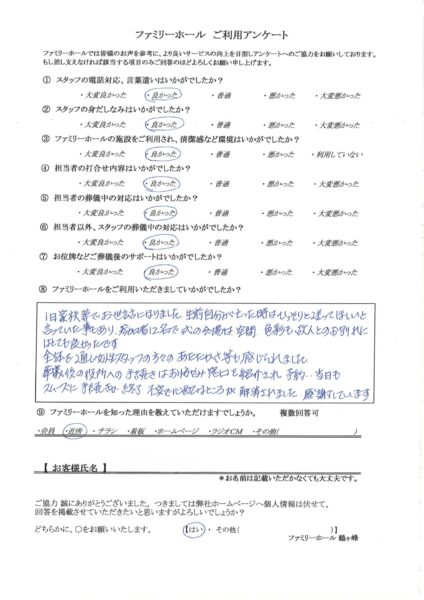 ファミリーホール ご利用アンケート
ファミリーホールでは皆様のお声を参考に、より良いサービスの向上を目指しアンケートへのご協力をお願いしております。
もし差し支えなければ該当する項目のみご回答のほどよろしくお願い申し上げます。
① スタッフの電話対応、言葉遣いはいかがでしたか?
・大変良かった ・良かった ・普通 ・悪かった ・大変悪かった
② スタッフの身だしなみはいかがでしたか?
・大変良かった ・良かった ・普通 ・悪かった ・大変悪かった
③ ファミリーホールの施設をご利用され、清潔感など環境はいかがでしたか?
・大変良かった ・良かった ・普通 ・悪かった ・利用していない
④ 担当者の打合せ内容はいかがでしたか?
・大変良かった ・良かった ・普通 ・悪かった ・大変悪かった
⑤ 担当者の葬儀中の対応はいかがでしたか?
・大変良かった ・良かった ・普通 ・悪かった ・大変悪かった
⑥ 担当者以外、スタッフの葬儀中の対応はいかがでしたか?
・大変良かった ・良かった ・普通 ・悪かった ・大変悪かった
⑦ お位牌などご葬儀後のサポートはいかがでしたか?
・大変良かった ・良かった ・普通 ・悪かった ・大変悪かった
⑧ ファミリーホールをご利用いただきましていかがでしたか?
1日家族葬でお世話になりました 生前自分が亡った時はひっそりと送ってほしいと
言っていた事もあり、参加者12名で式の会場は空間、色彩も故人とのお別れに
はとても良かったです
全体を通し女性スタッフの方々のあたたかさ等も感じられました
葬儀後の役所への手続きはお悔やみ窓口も紹介され 予約…当日も
スムーズに手続きが終了 不安で心配なところが解消されました 感謝しています
⑨ ファミリーホールを知った理由を教えていただけますでしょうか。 複数回答可
・会員 ・近所 ・チラシ ・看板 ・ホームページ ・ラジオCM ・その他( )
【 お客様氏名 】
*お名前は記載いただかなくても大丈夫です。
ご協力 誠にありがとうございました。つきましては弊社ホームページへ個人情報は伏せて、
回答を掲載させていただきたいと思いますがよろしいでしょうか?
どちらかに、○をお願いいたします。 【はい・ その他( )】
ファミリーホール 鶴ヶ峰